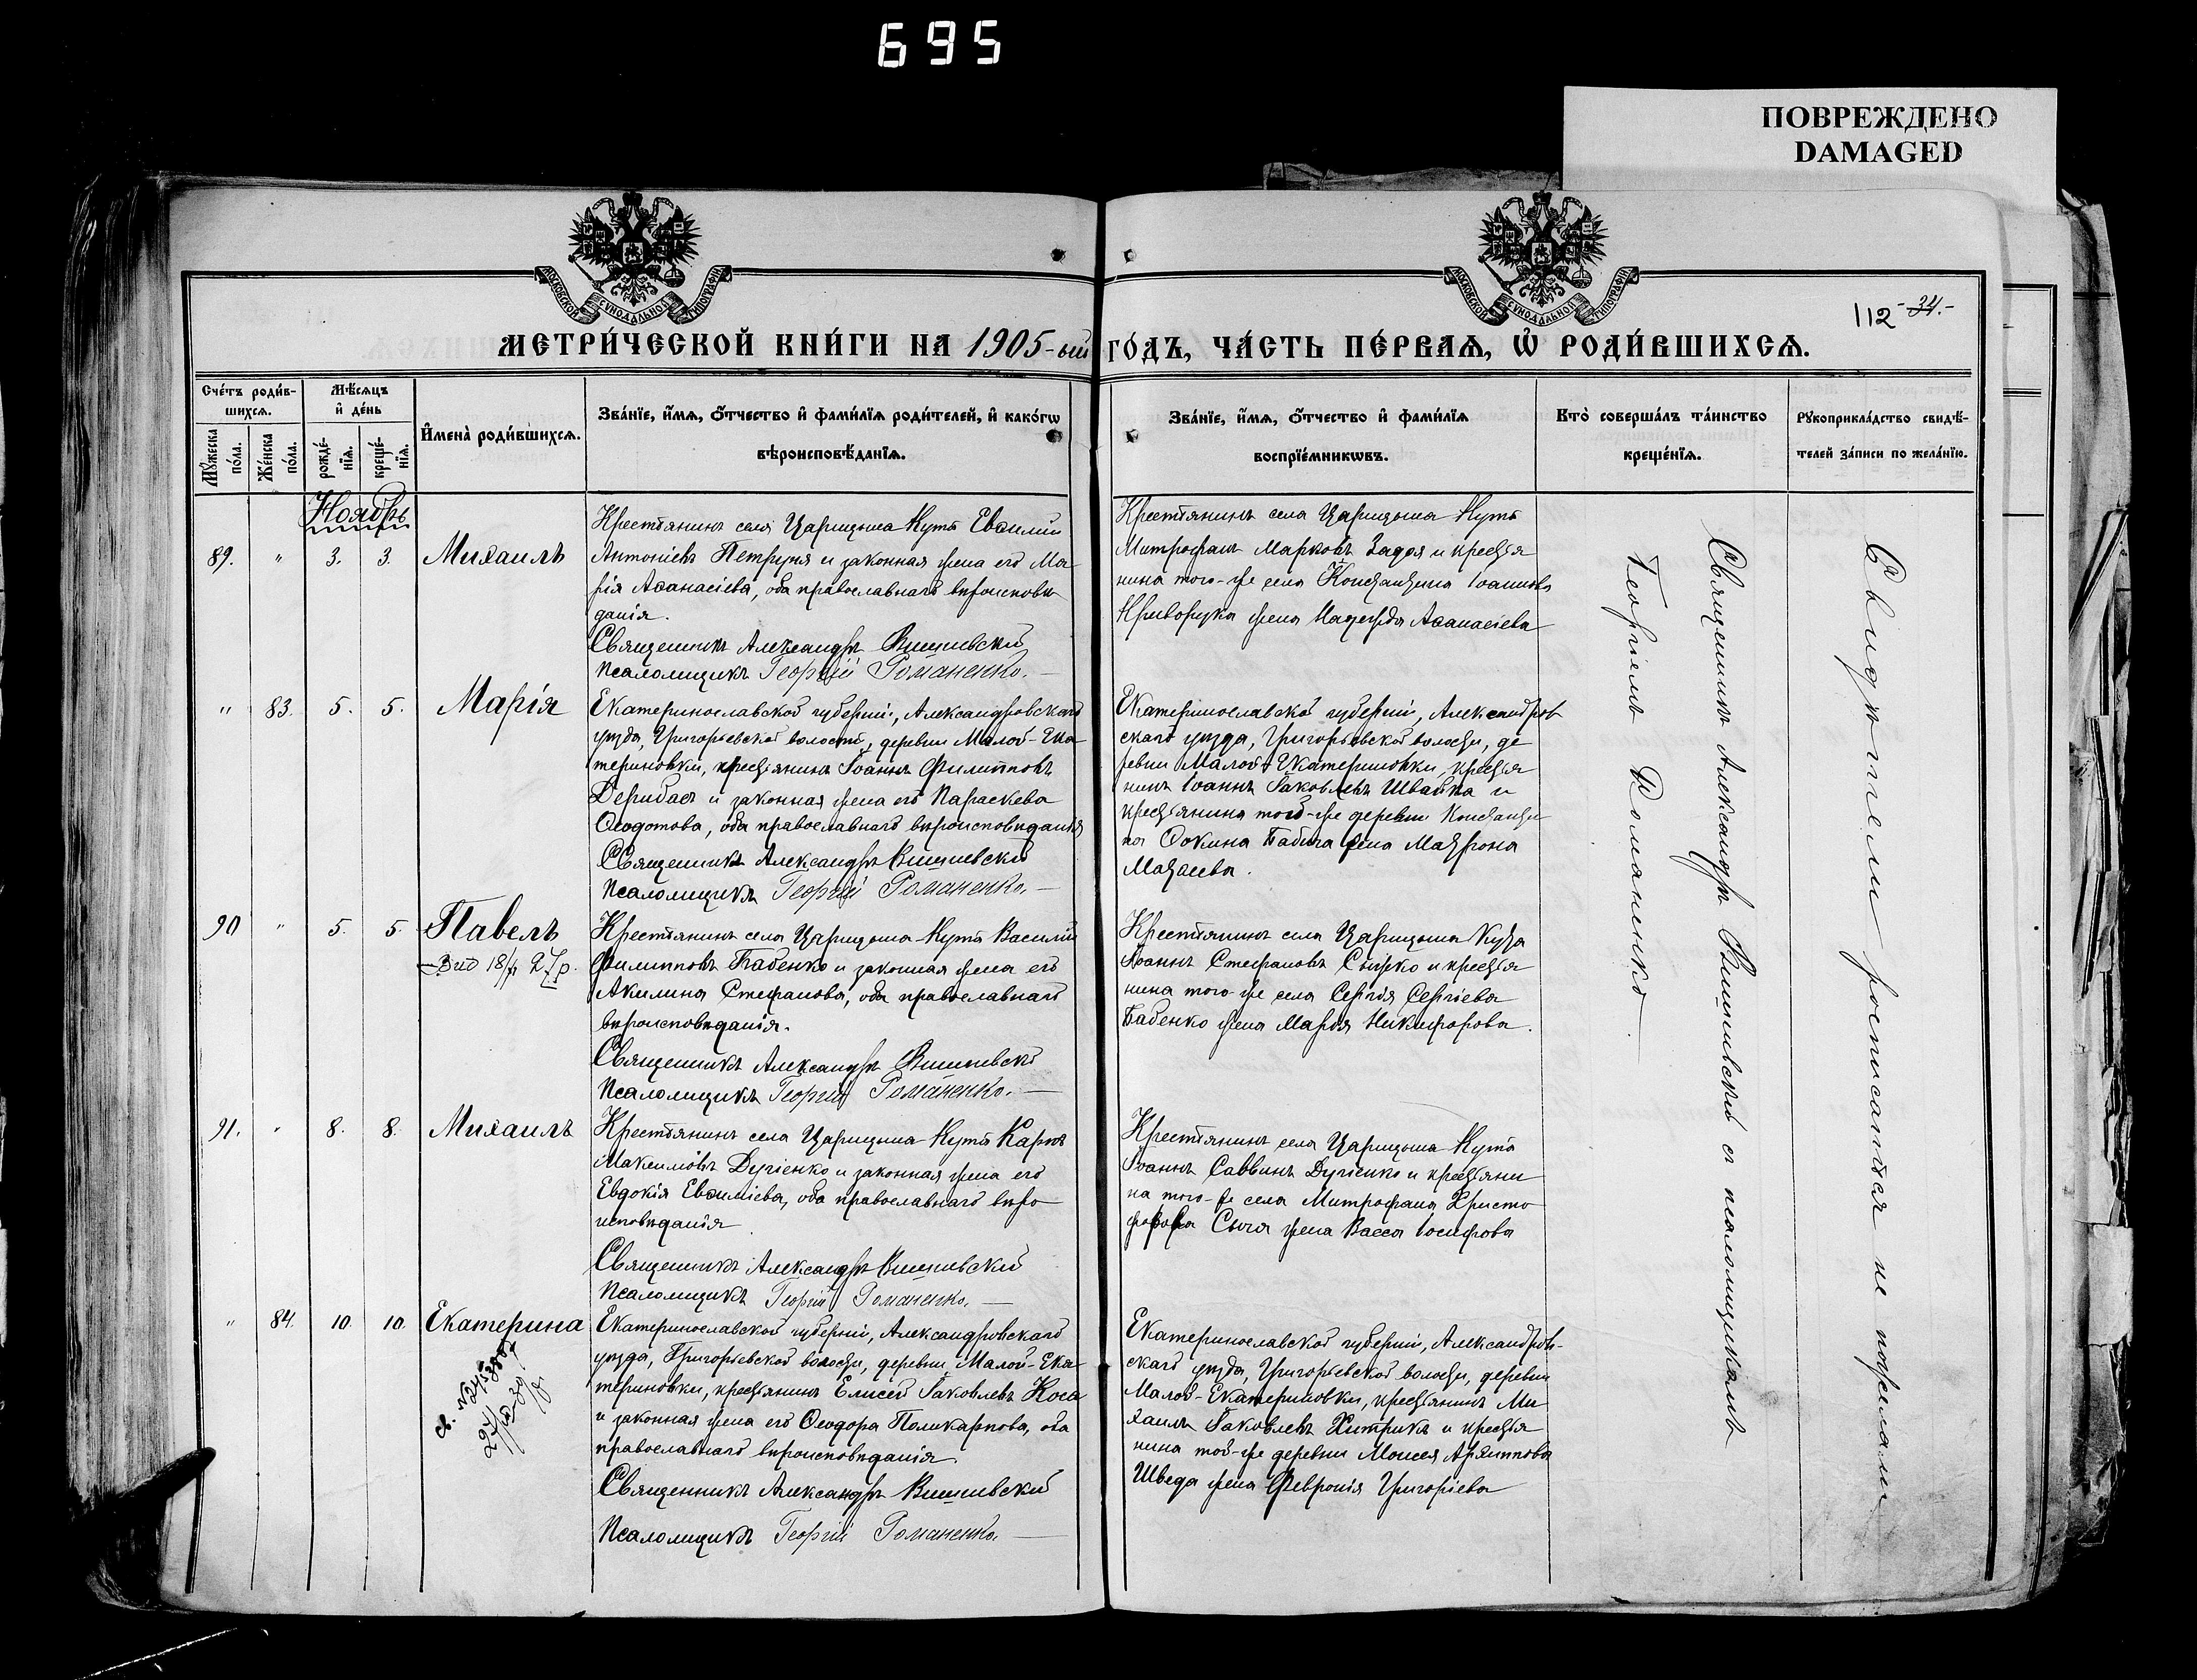 695
ПОВРЕЖДЕНО
DAMAGED
МОСКОВСКОЙ СѴНОДАЛЬНОЙ ТИПОГРАФІИ
МОСКОВСКОЙ СѴНОДАЛЬНОЙ ТИПОГРАФІИ
112 -34.-
МЕТРИ́ЧЕСКОЙ КНИ́ГИ НА 1905-ый ГО́ДЪ, ЧА́СТЬ ПЕ́РВАѦ, Ѡ҆ РОДИ́ВШИХСѦ.
Сче́тъ роди́в-
шихсѧ.
Мѣ́сѧцъ
и҆ де́нь
Мꙋ́жеска
по́ла.
Же́нска
по́ла.
рожде́-
нїѧ.
креще́-
нїѧ.
И҆мена̀ роди́вшихсѧ.
Зва́нїе, и҆́мѧ, ѻ҆́тчество и҆ фами́лїѧ роди́телей, и҆ како́гѡ
вѣроисповѣ́данїѧ.
Зва́нїе, и҆́мѧ, ѻ҆́тчество и҆ фами́лїѧ
воспрїе́мникѡвъ.
Кто̀ соверша́лъ та́инство
креще́нїѧ.
Рꙋкоприкла́дство свидѣ́-
телей за́писи по жела́нїю.
Ноябрь
89. " 3. 3. Михаилъ
Крестьянинъ села Царицына Кута Евѳимій
Антоніевъ Петруня и законная жена его Ма-
рія Аѳанасіева, оба православнаго вѣроисповѣ-
данія.
Священникъ Александръ Вишневскій
Псаломщикъ Георгій Романенко.
Крестьянинъ села Царицына Кута
Митрофанъ Марковъ Задоя и крестья
нина того-же села Константина Іоаннова
Криворучка жена Надежда Аѳанасіева
" 83. 5. 5. Марія
Екатеринославской губерніи, Александровскаго
уѣзда, Григорьевской волости, деревни Малой-Ека
териновки, крестьянинъ Іоаннъ Филипповъ
Дерибасъ и законная жена его Параскева
Ѳеодотова, оба православнаго вѣроисповѣданія
Священникъ Александръ Вишневскій
Псаломщикъ Георгій Романенко.
Екатеринославской губерніи, Александров
скаго уѣзда, Григорьевской волости, де
ревни Малой Екатериновки, крестья
нинъ Іоаннъ Іаковлевъ Швайка и
крестьянина той-же деревни Константи
на Ѳокина Бабича жена Матрона
Матѳеева.
90 " 5. 5. Павелъ
Крестьянинъ села Царицына-Кута Василій
Филипповъ Бабенко и законная жена его
Акилина Стефанова, оба православнаго
вѣроисповѣданія.
Священникъ Александръ Вишневскій
Псаломщикъ Георгій Романенко.
Крестьянинъ села Царицына Кута
Іоаннъ Стефановъ Сырко и крестья
нина того-же села Сергія Сергіева
Бабенко жена Марія Никифорова.
91. " 8. 8. Михаилъ
Крестьянинъ села Царицына-Кута Карпъ
Максимовъ Дугіенко и законная жена его
Евдокія Евѳиміева, оба православнаго вѣро
исповѣданія
Священникъ Александръ Вишневскій
Псаломщикъ Георгій Романенко.
Крестьянинъ села Царицына Кута
Іоаннъ Саввинъ Дугіенко и крестьяни
на того-же села Митрофана Христо
форова Сыча жена Васса Іосифова
" 84. 10. 10. Екатерина
Екатеринославской губерніи, Александровскаго
уѣзда, Григорьевской волости, деревни Малой-Ека
териновки, крестьянинъ Елисей Іаковлевъ Коса
и законная жена его Ѳеодора Поликарпова, оба
православнаго вѣроисповѣданія.
Священникъ Александръ Вишневскій
Псаломщикъ Георгій Романенко.
Екатеринославской губерніи, Александров-
скаго уѣзда, Григорьевской волости, деревни
Малой-Екатериновки, крестьянинъ Ми
хаилъ Іаковлевъ Хитрикъ и крестья
нина той-же деревни Моисея Архиппова
Шведа жена Февронія Григоріева
Священникъ Александръ Вишневскій съ псаломщикомъ
Георгіемъ Романенко
Свидѣтели росписаться не пожелали